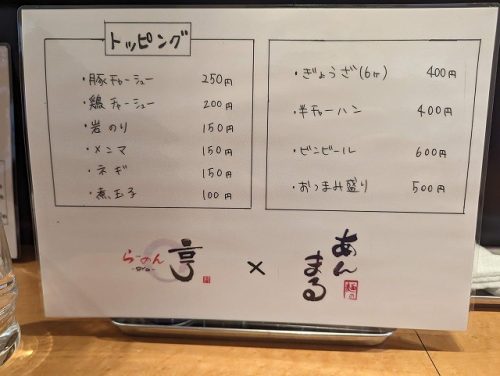 トッピング
・豚チャーシュー 250円
・鶏チャーシュー 200円
・岩のり 150円
・メンマ 150円
・ネギ 150円
・煮玉子 100円
・ぎょうざ(6ヶ) 400円
・半チャーハン 400円
・ビンビール 600円
・おつまみ盛り 500円
らーめん
亨
×
麺の
あんまる